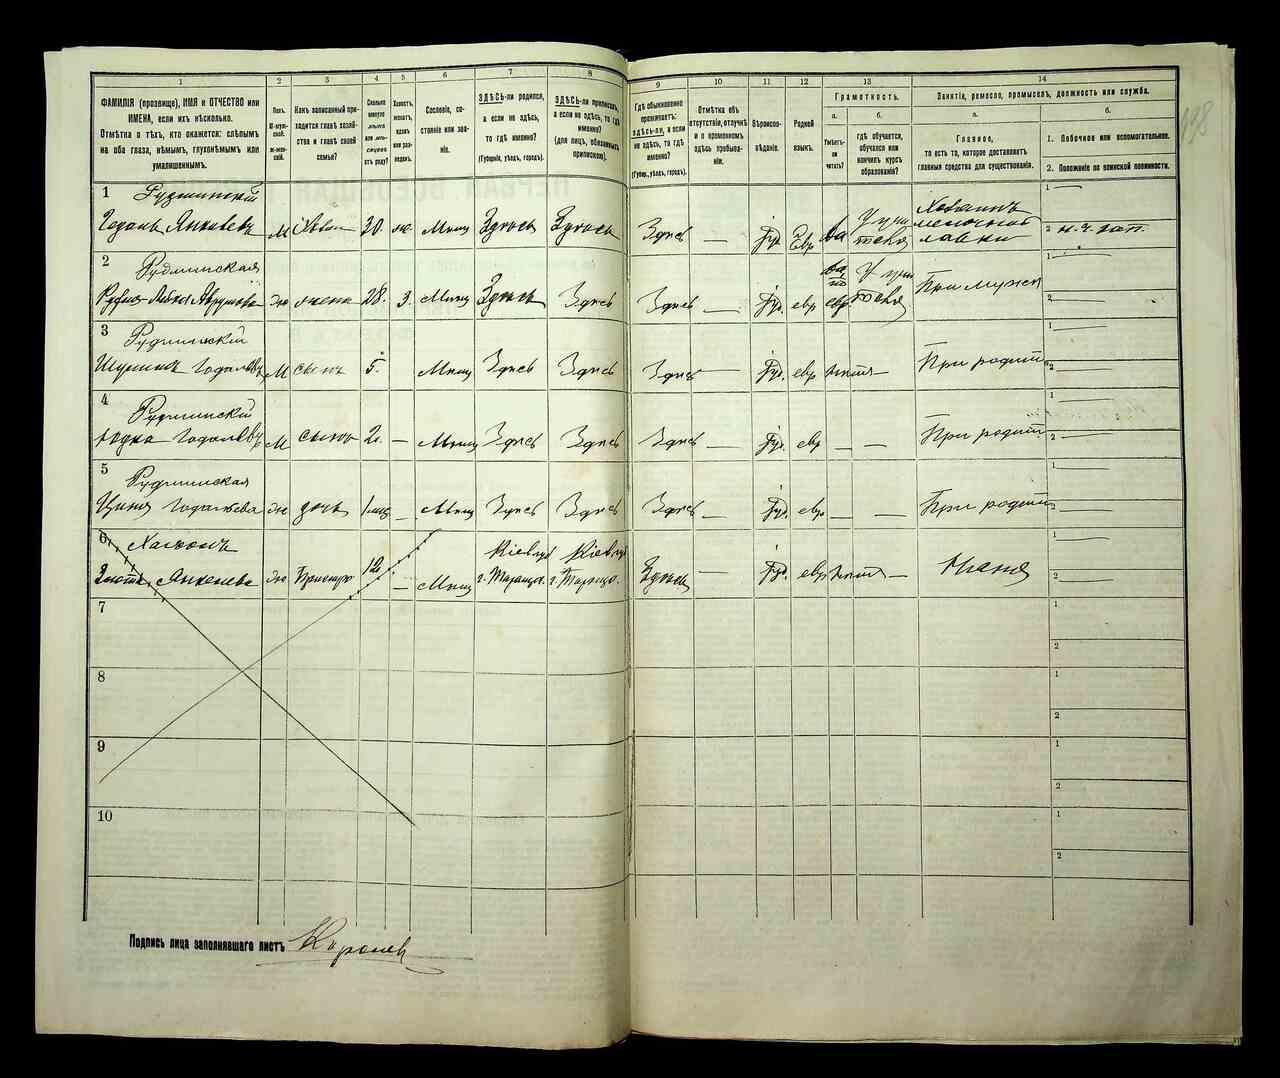 1 2 3 4 5 6 7 8 9 10 11 12 13 14
ФАМИЛІЯ (прозвище), ИМЯ и ОТЧЕСТВО или
ИМЕНА, если ихъ нѣсколько.
Отмѣтка о тѣхъ, кто окажется: слѣпымъ
на оба глаза, нѣмымъ, глухонѣмымъ или
умалишеннымъ.
Полъ.
М-муж-
ской.
Ж-жен-
скій.
Какъ записанный при-
ходится главѣ хозяй-
ства и главѣ своей
семьи?
Сколько
минуло
лѣтъ
или мѣ-
сяцевъ
отъ роду?
Холостъ,
женатъ,
вдовъ
или раз-
веденъ.
Сословіе, со-
стояніе или зва-
ніе.
ЗДѢСЬ-ли родился,
а если не здѣсь,
то гдѣ именно?
(Губернія, уѣздъ, городъ).
ЗДѢСЬ-ли приписанъ,
а если не здѣсь, то гдѣ
именно?
(для лицъ, обязанныхъ
припискою).
Гдѣ обыкновенно
проживаетъ:
здѣсь-ли, а если
не здѣсь, то гдѣ
именно?
(Губерн., уѣздъ, городъ).
Отмѣтка объ
отсутствіи, отлучкѣ
и о временномъ
здѣсь пребыва-
ніи.
Вѣроиспо-
вѣданіе.
Родной
языкъ.
Грамотность.
а.
Умѣетъ-
ли
читать?
б.
гдѣ обучается,
обучался или
кончилъ курсъ
образованія?
Занятіе, ремесло, промыселъ, должность или служба.
а.
Главное,
то есть то, которое доставляетъ
главныя средства для существованія.
б.
1. Побочное или вспомогательное.
2. Положеніе по воинской повинности.
198
1 Рудминскій
Годаль Янкелевъ М Хозяин 30. ж. Мѣщ Здѣсь Здѣсь Здѣсь — Іуд. Евр да У учи
теля Хозяинъ
мелочной
лавки
1 —
2 н. ч. зап.
2 Рудминская
Жн жена 28. З. Мѣщ Здѣсь Здѣсь Здѣсь — Іуд. евр да по
евр. У учи
теля При мужѣ
1 —
2
3 Рудминскій
М сынъ 5. Мѣщ Здѣсь Здѣсь Здѣсь — Іуд. евр нѣтъ — При родит
1 —
2
4 Рудминскій
М сынъ 2. — Мѣщ Здѣсь Здѣсь Здѣсь — Іуд. евр — — При родит
1 —
2 —
5 Рудминская
Жн дочь — Мѣщ Здѣсь Здѣсь Здѣсь — Іуд. евр — — При родит
1 —
2 —
6
Злота Янкелева Жн 12 — Мѣщ Кіевгуб
г. Таращ. Кіевгуб
г. Таращ. Здѣсь — Іуд евр нѣтъ — Няня
1 —
2 —
7
1
2
8
1
2
9
1
2
10
1
2
Подпись лица заполнявшаго листъ Королев